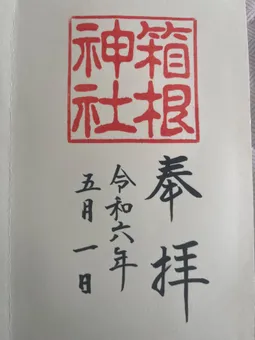 箱根
神社
奉拝
令和六年
五月一日